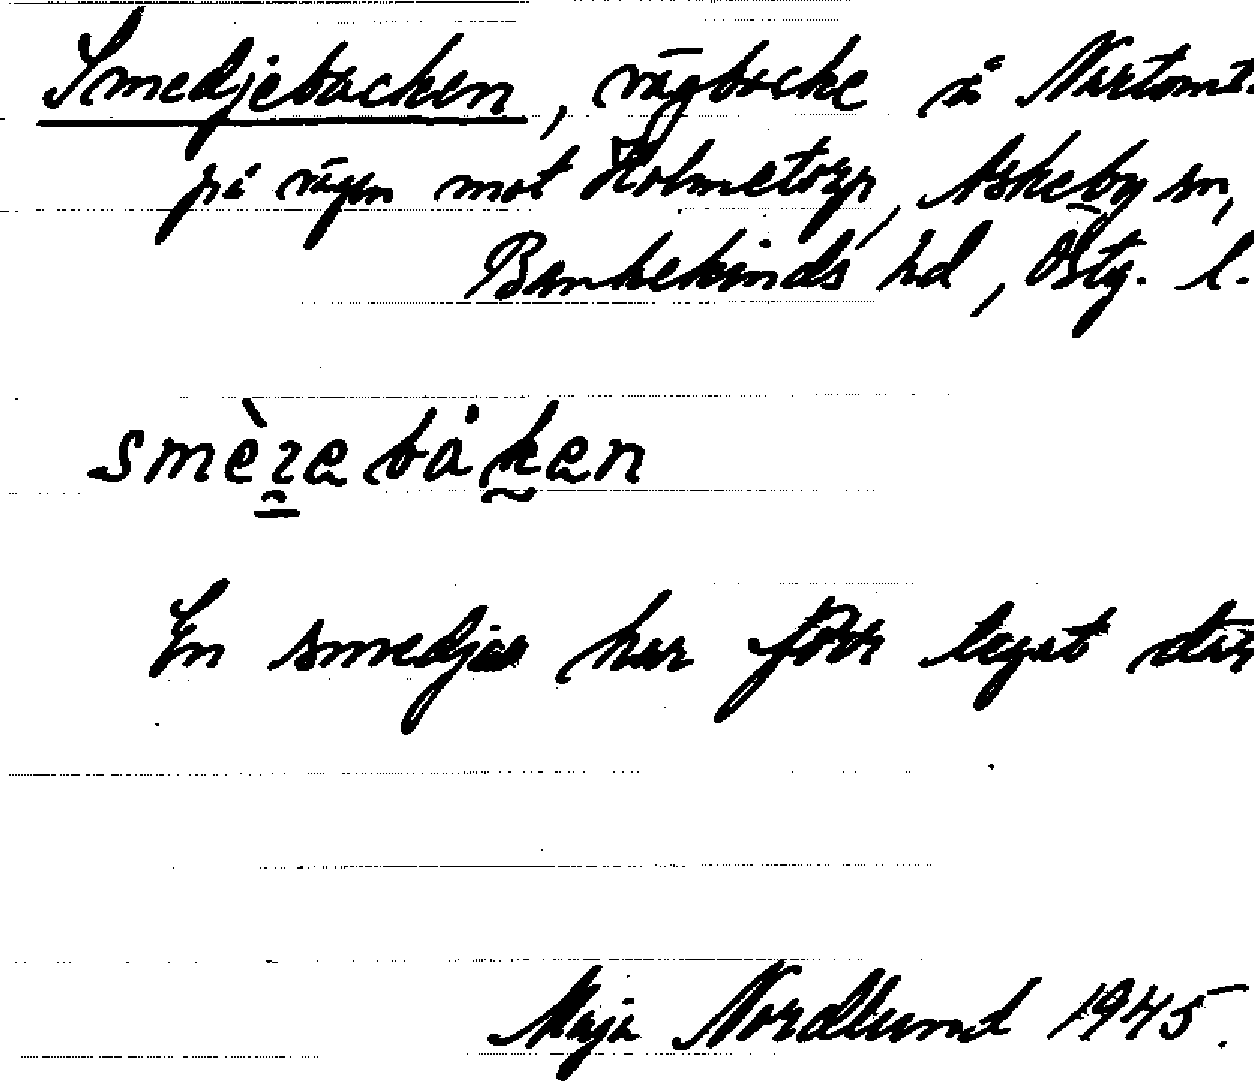 Smedjebacken, vägbacke å Nartomt
på vägen mot Holmetorp, Askeby sn,
Bankekinds hd, Östg. l.
smèrebåken
En smedja har förr legat där
Maja Nordlund 1945.